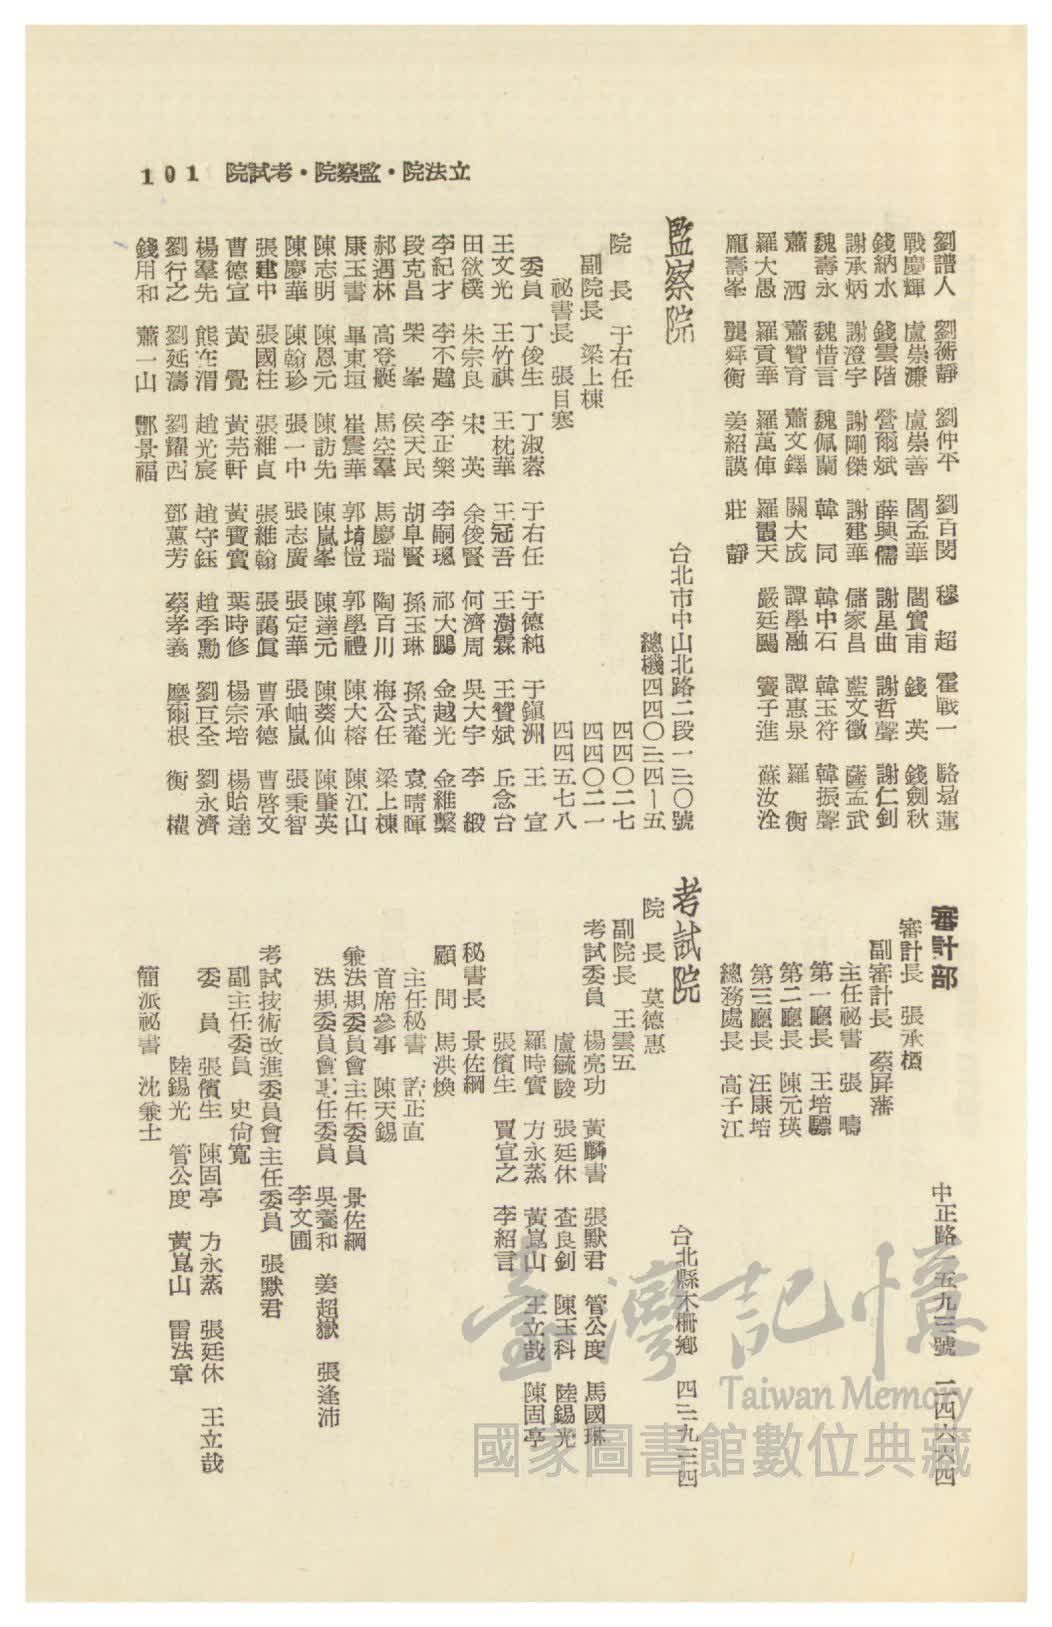 101 院試考・院察監・院法立
劉譜人 劉蘅靜 劉仲平 劉百閔 穆 超 霍戰一 駱啟蓮
戰慶輝 盧崇濂 盧崇善 閻孟華 閻實甫 錢 英 錢劍秋
錢納水 錢雲階 營爾斌 薛興儒 謝星曲 謝哲聲 謝仁釗
謝承炳 謝澄宇 謝剛傑 謝建華 儲家昌 藍文徵 薩孟武
魏壽永 魏惜言 魏佩蘭 韓 同 韓中石 韓玉符 韓振聲
蕭 洒 蕭贊育 蕭文鐸 關大成 譚學融 譚惠泉 羅 衡
羅大愚 羅貢華 羅萬俥 羅霞天 嚴廷颺 竇子進 蘇汝淦
龐壽峯 龔舜衡 姜紹謨 莊 靜
監察院
台北市中山北路二段一三〇號
總機四四〇三四—五
院 長 于右任 四四〇二七
副院長 梁上棟 四四〇二一
祕書長 張目寒 四四五七八
委員 丁俊生 丁淑蓉 于右任 于德純 于鎮洲 王 宣
王文光 王竹祺 王枕華 王冠吾 王澍霖 王贊斌 丘念台
田欲樸 朱宗良 宋 英 余俊賢 何濟周 吳大宇 李 緞
李紀才 李不韙 李正樂 李嗣璁 祁大鵬 金越光 金維繫
段克昌 柴 峯 侯天民 胡阜賢 孫玉琳 孫式菴 袁晴暉
郝遇林 高登艇 馬空羣 馬慶瑞 陶百川 梅公任 梁上棟
康玉書 畢東垣 崔震華 郭堉愷 郭學禮 陳大榕 陳江山
陳志明 陳恩元 陳訪先 陳嵐峯 陳達元 陳葵仙 陳肇英
陳慶華 陳翰珍 張一中 張志廣 張定華 張岫嵐 張秉智
張建中 張國柱 張維貞 張維翰 張藹眞 曹承德 曹啓文
曹德宣 黃 覺 黃芫軒 黃寶實 葉時修 楊宗培 楊貽達
楊羣先 熊在渭 趙光宸 趙守鈺 趙季勳 劉亘全 劉永濟
劉行之 劉延濤 劉耀西 鄧蕙芳 蔡孝義 摩爾根 衡 權
錢用和 蕭一山 酆景福
審計部 中正路一五九三號 二四六六四
審計長 張承槱
副審計長 蔡屏藩
主任祕書 張 疇
第一廳長 王培騵
第二廳長 陳元瑛
第三廳長 汪康培
總務處長 高子江
考試院 台北縣木柵鄉 四三九三四
院 長 莫德惠
副院長 王雲五
考試委員 楊亮功 黃麟書 張默君 管公度 馬國琳
盧毓駿 張廷休 查良釗 陳玉科 陸錫光
羅時實 方永蒸 黃崑山 王立哉 陳固亭
張儐生 賈宣之 李紹言
秘書長 景佐綱
顧 問 馬洪煥
主任秘書 許正直
首席參事 陳天錫
兼法規委員會主任委員 景佐綱
法規委員會專任委員 吳養和 姜超嶽 張逢沛
李文圃
考試技術改進委員會主任委員 張默君
副主任委員 史尙寬
委 員 張儐生 陳固亭 方永蒸 張廷休 王立哉
陸錫光 管公度 黃崑山 雷法章
簡派祕書 沈兼士
臺灣記憶
Taiwan Memory
國家圖書館數位典藏